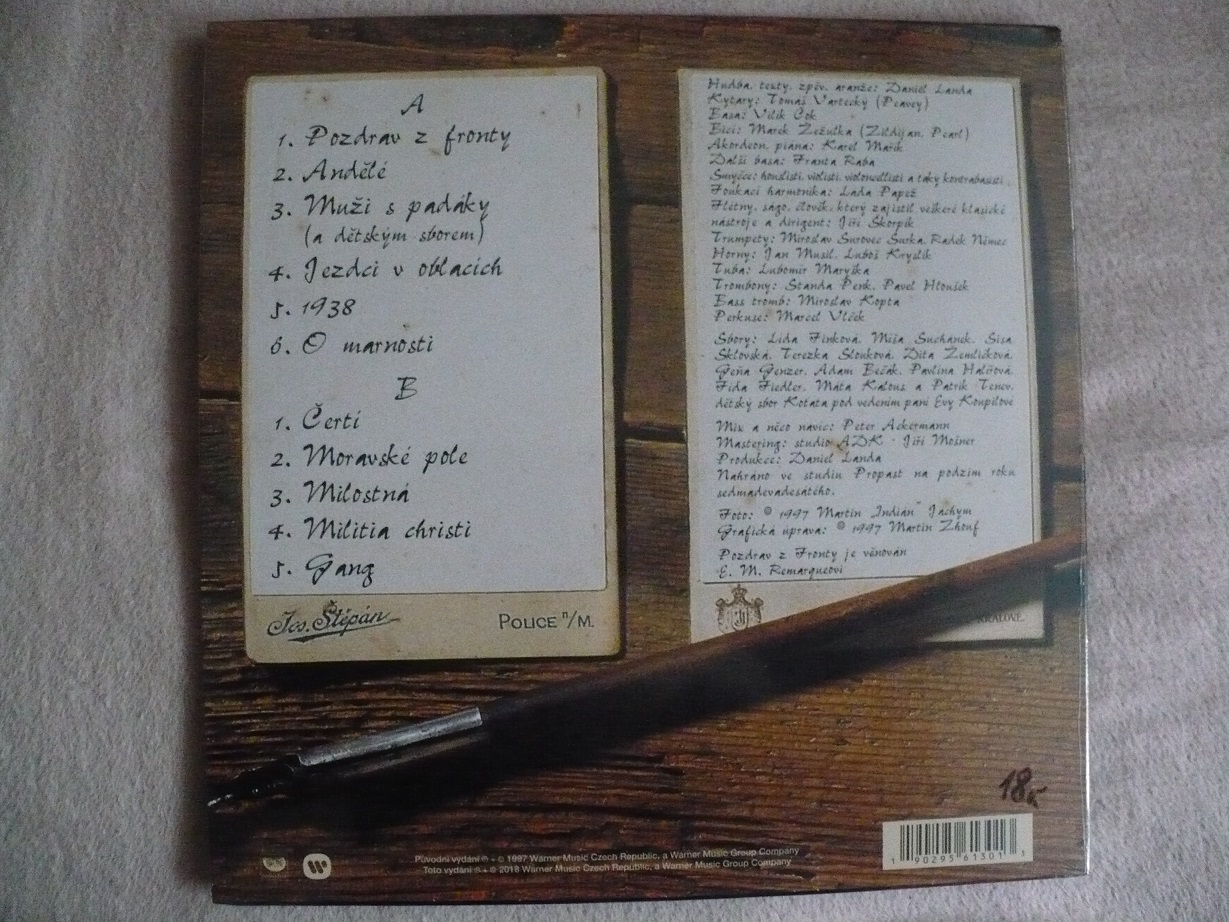 A
1. Pozdrav z fronty
2. Andělé
3. Muži s padáky
(a dětským sborem)
4. Jezdci v oblacích
5. 1938
6. O marnosti
B
1. Čerti
2. Moravské pole
3. Milostná
4. Militia christi
5. Gang
Jos. Štěpán
POLICE n/M.
Hudba, texty, zpěv, aranže: Daniel Landa
Kytary: Tomáš Vartecký (Peavey)
Basa: Vilík Čok
Bicí: Marek Žežulka (Zildjian, Pearl)
Akordeon, piana: Karel Mařík
Další basa: Franta Raba
Smyčce: houslisti, violisti, violoncellisti a taky kontrabasisti.
Foukací harmonika: Láďa Papež
Flétny, ságo, člověk, který zajistil veškeré klasické
nástroje a dirigent: Jiří Škorpík
Trumpety: Miroslav Surovec Surka, Radek Němec
Horny: Jan Musil, Luboš Kryslík
Tuba: Lubomír Maryška
Trombony: Standa Penk, Pavel Hloušek
Bass tromb: Miroslav Kopta
Perkuse: Marcel Vlček
Sbory: Lída Finková, Míša Suchánek, Sisa
Sklovská, Terezka Slouková, Dita Zemličková,
Geňa Genzer, Adam Bečák, Pavlína Halířová,
Fída Fiedler, Máta Kalous a Patrik Tenev,
dětský sbor Koťata pod vedením paní Evy Koupilové
Mix a něco navíc: Peter Ackermann
Mastering: studio ADK - Jiří Mošner
Produkce: Daniel Landa
Nahráno ve studiu Propast na podzim roku
sedmadevadesátého.
Foto: © 1997 Martin "Indián" Jáchym
Grafická úprava: © 1997 Martin Zhouf
Pozdrav z Fronty je věnován
E. M. Remarqueovi
KRÁLOVÉ.
18,-
Původní vydání ℗ + © 1997 Warner Music Czech Republic, a Warner Music Group Company
Toto vydání ℗ + © 2018 Warner Music Czech Republic, a Warner Music Group Company
1 90295 61301 1